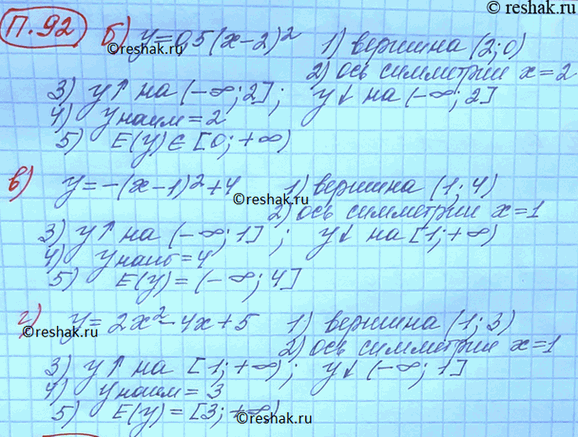 ©reshak.ru
П.92 б) y=0,5(x-2)² 1) вершина (2;0)
2) ось симметрии x=2
3) y↑ на (-∞;2]; y↓ на (-∞;2]
4) yнаим=2
5) E(y)∈[0;+∞)
©reshak.ru
в) y=-(x-1)²+4 1) вершина (1;4)
©reshak.ru
2) ось симметрии x=1
3) y↑ на (-∞;1]; y↓ на [1;+∞)
4) yнаиб=4
5) E(y)=(-∞;4]
©reshak.ru
г) y=2x²-4x+5 1) вершина (1;3)
2) ось симметрии x=1
3) y↑ на [1;+∞); y↓ (-∞;1]
4) yнаим=3
5) E(y)=[3;+∞)
©reshak.ru